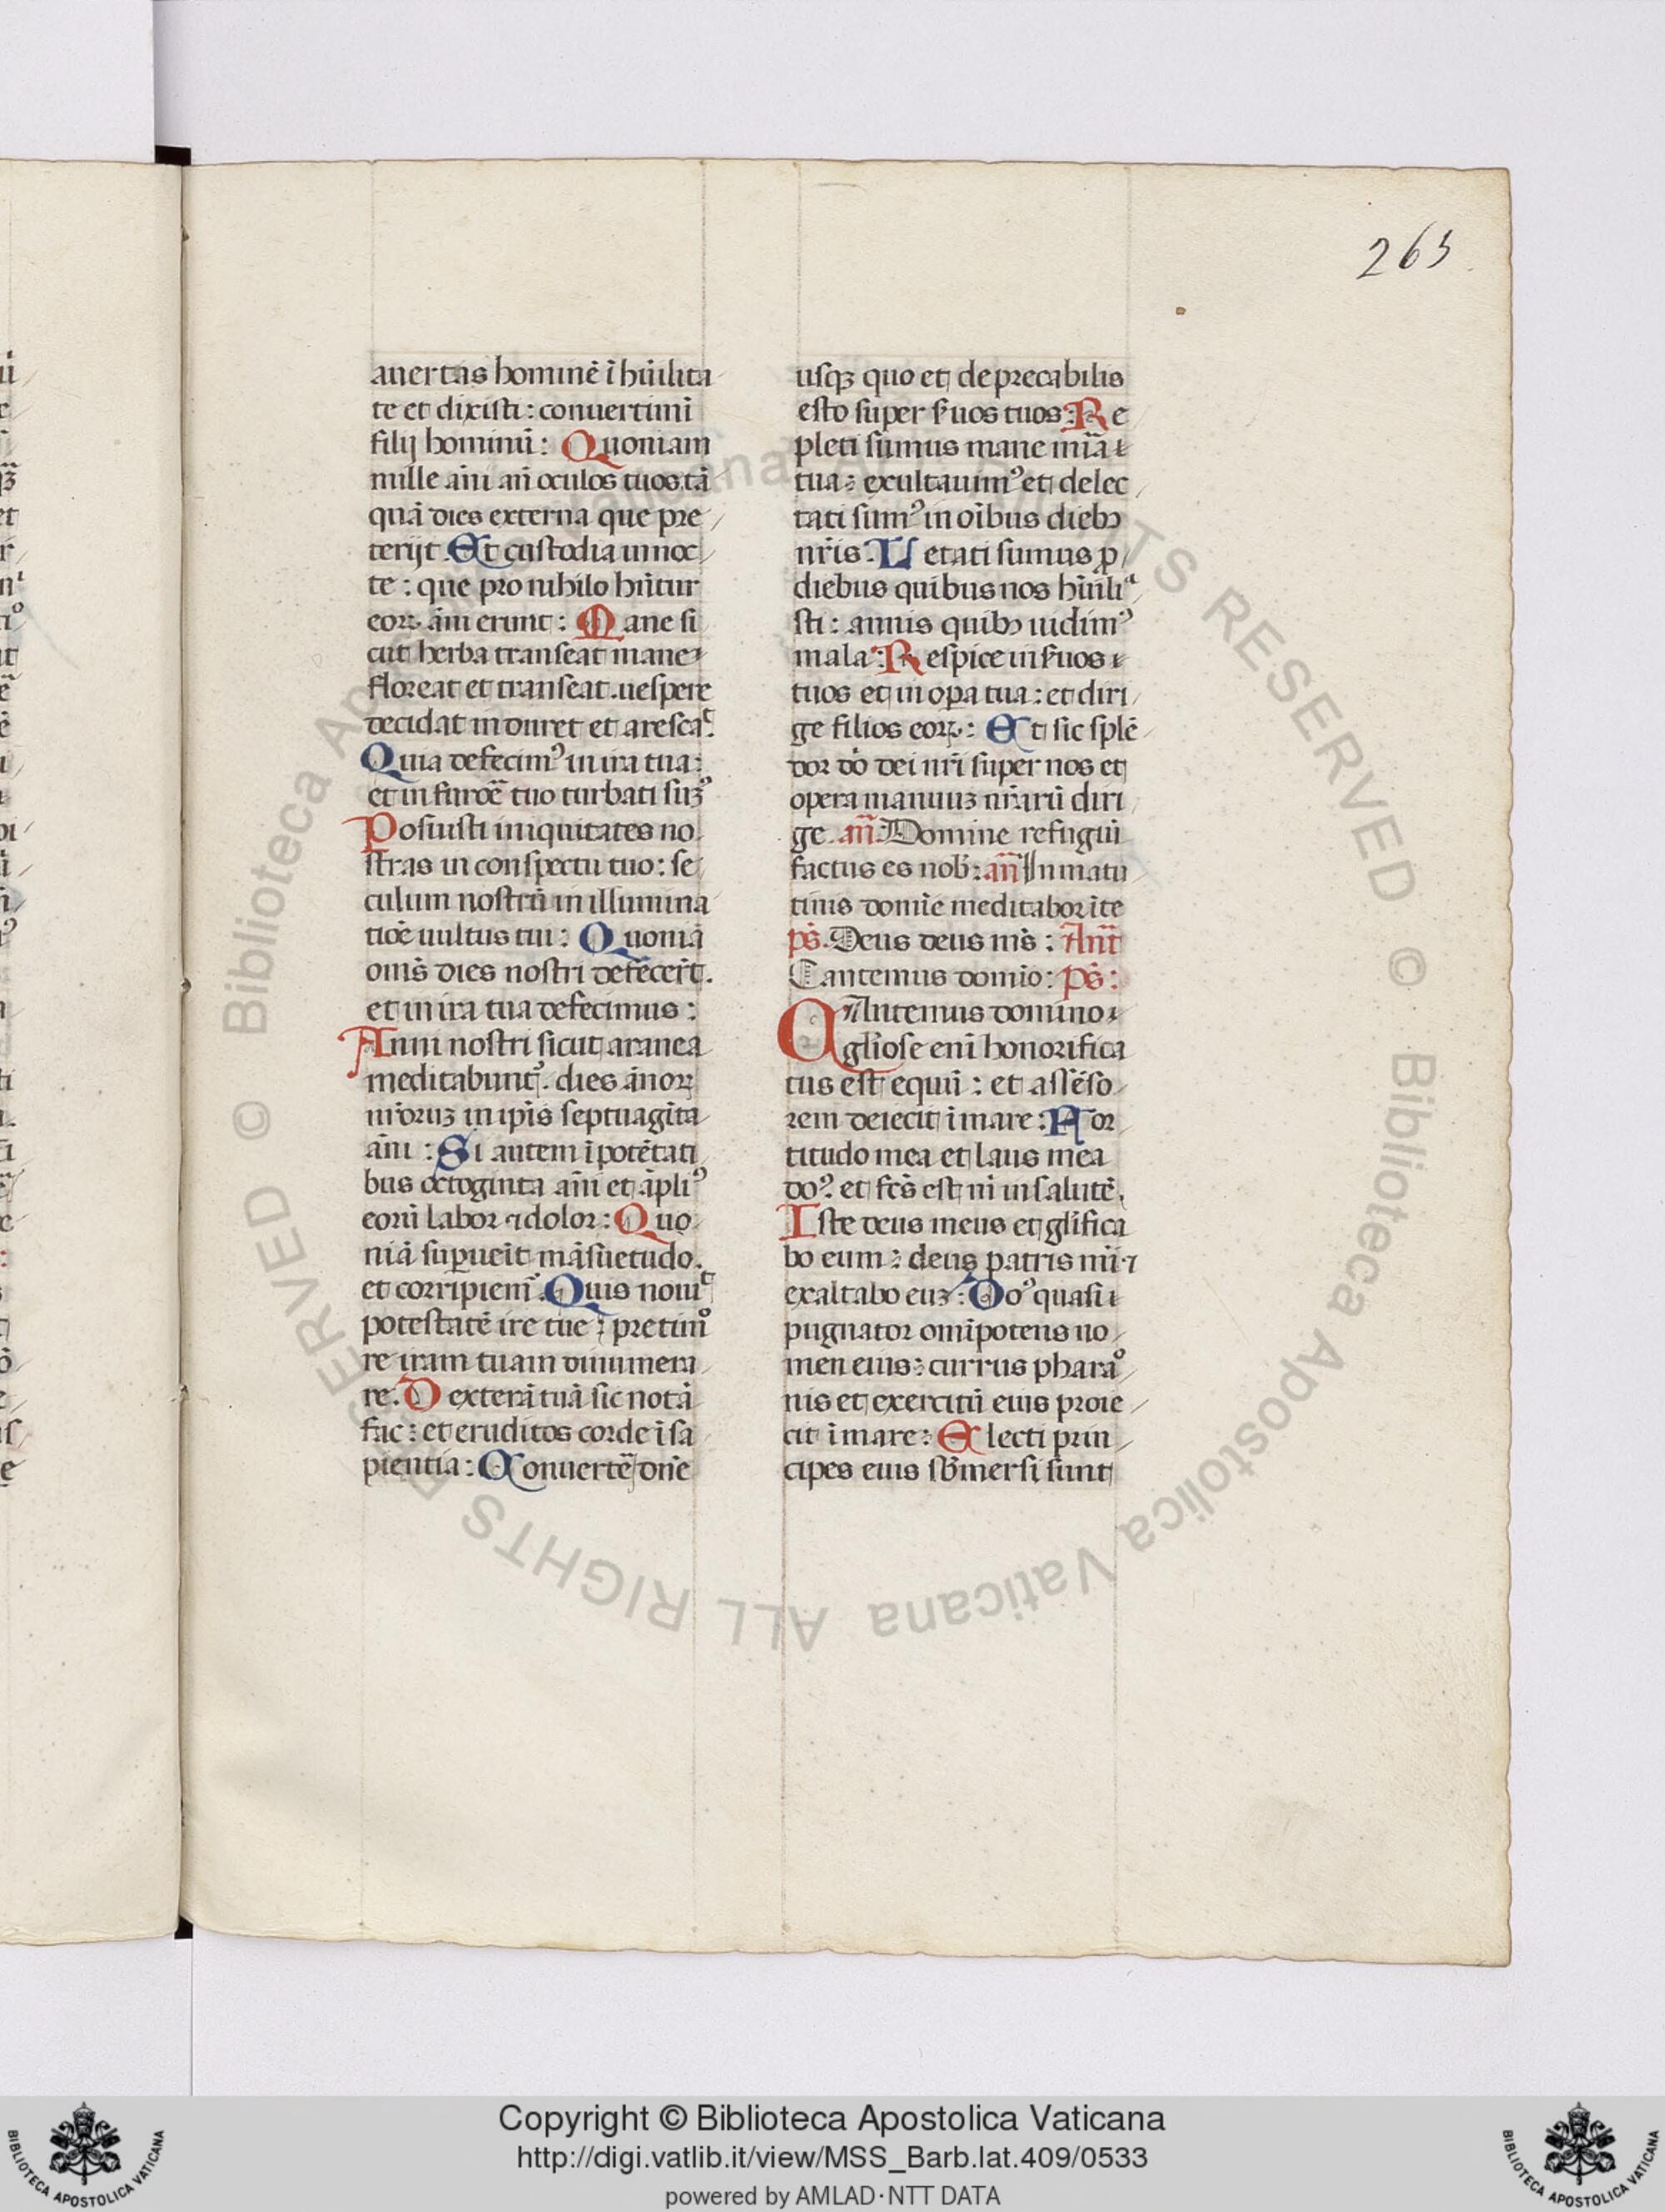 263
auertas hominē ī hūilita
te et dixisti : conuertimī
filij hominū : Quoniam
mille ām añ oculos tuos tā
quā dies externa que pre
terijt Et custodia in noc
te : que pro nihilo hn̄tur
eoꝝ. ām erunt : Mane si
cut herba transeat mane
floreat et transeat. uespere
decidat induret et arescaᵗ.
Quia defecimꝰ in ira tua :
et in furoē tuo turbati suꝫꝰ
Posuisti iniquitates no
stras in conspectu tuo : se
culum nostrū in illumina
tiōe uultus tui : Quoniā
om̄s dies nostri defecer̄t.
et in ira tua defecimus :
Anni nostri sicut aranea
meditabuntᷣ. dies ānoꝝ
nr̄oruꝫ in ip̄is septuagīta
ām : Si autem ī potētati
bus octoginta ām et āpliꝰ
eorū labor ⁊ dolor : Quo
niā sup̲ueīt māsuetudo.
et corripiemᷣ. Quis nouiᵗ
potestatē ire tue : pre timº
re iram tuam dinumera
re. Dexterā tuā sic notā
fac : et eruditos corde ī sa
pientia : Conuertē dn̄e
usqꝫ quo et deprecabilis
esto super s̄uos tuos : Re
pleti sumus mane mīa
tua : exultauimꝰ et delec
tati sumꝰ in oībus diebꝫ
nr̄is. Letati sumus ꝓ
diebus quibus nos hūiliᵃ
sti : annis quibꝫ uidimꝰ
mala : Respice in s̄uos
tuos et in oꝑa tua : et diri
ge filios eoꝝ. : Et sic splē
dor dō dei nr̄i super nos et
opera manuuꝫ nr̄arū diri
ge. añ. Domine refugiū
factus es nob̄ : añ In matu
tinis domīe meditabor ī te
p̄s. Deus deus ms̄ : Ant̄
Cantemus domīo : P̄s :
CAntemus domino
gl̄iose enī honorifica
tus est equū : et asc̄ēso
rem deiecit ī mare : For
titudo mea et laus mea
doꝰ. et fcs̄ est m̄ in salutē.
Iste deus meus et gl̄ifica
bo eum : deus patris mī ⁊
exaltabo euꝫ : Doꝰ quasi
pugnator om̄ipotens no
men eius : currus pharaº
nis et exercitū eius proie
cit ī mare : Electi prin
cipes eius sb̄mersi sunt
Copyright © Biblioteca Apostolica Vaticana
http://digi.vatlib.it/view/MSS_Barb.lat.409/0533
powered by AMLAD·NTT DATA
BIBLIOTECA APOSTOLICA VATICANA
BIBLIOTECA APOSTOLICA VATICANA
© Biblioteca Apostolica Vaticana ALL RIGHTS RESERVED
© Biblioteca Apostolica Vaticana ALL RIGHTS RESERVED